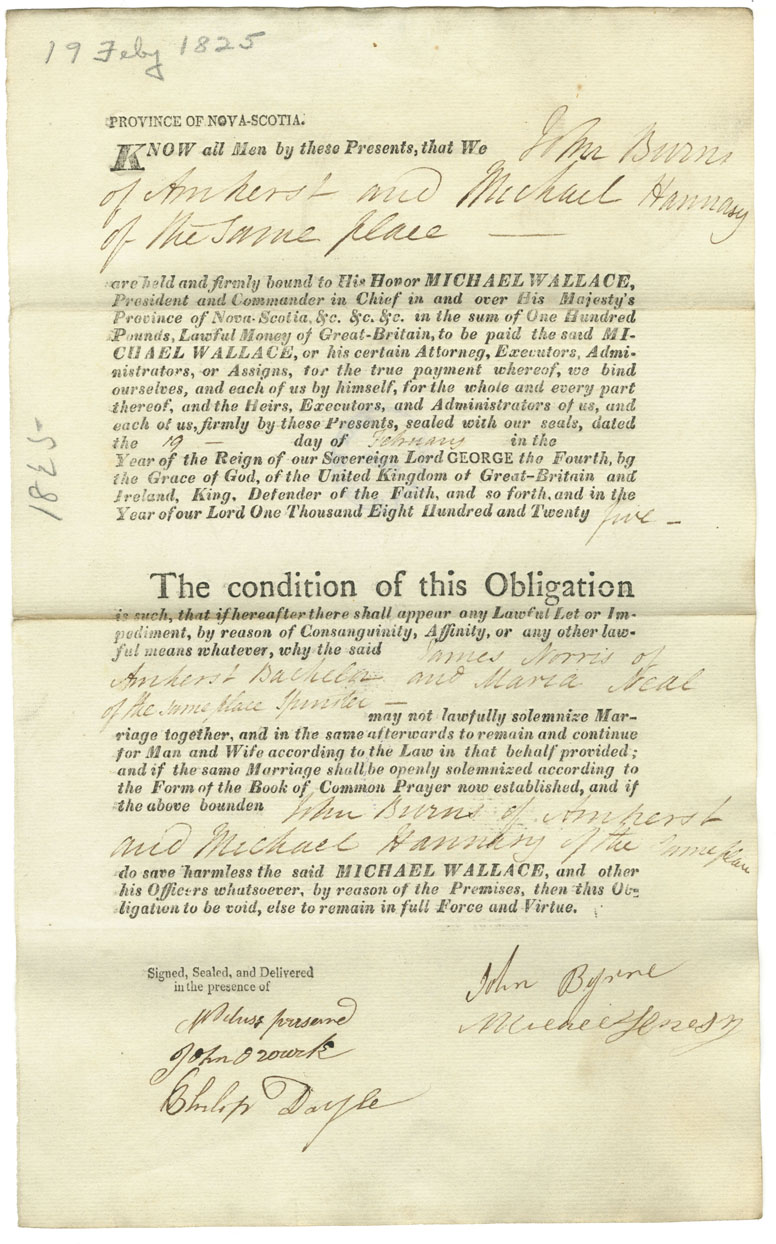 19 Feby 1825
PROVINCE OF NOVA-SCOTIA.
KNOW all Men by these Presents, that We John Burns
of Amherst and Michael Hannasy
of the same place —
are held and firmly bound to His Honor MICHAEL WALLACE,
President and Commander in Chief in and over His Majesty's
Province of Nova-Scotia, &c. &c. &c. in the sum of One Hundred
Pounds, Lawful Money of Great-Britain, to be paid the said MI-
CHAEL WALLACE, or his certain Attorney, Executors, Admi-
nistrators, or Assigns, for the true payment whereof, we bind
ourselves, and each of us by himself, for the whole and every part
thereof, and the Heirs, Executors, and Administrators of us, and
each of us, firmly by these Presents, sealed with our seals, dated
the 19 — day of February in the
Year of the Reign of our Sovereign Lord GEORGE the Fourth, by
the Grace of God, of the United Kingdom of Great-Britain and
Ireland, King, Defender of the Faith, and so forth, and in the
Year of our Lord One Thousand Eight Hundred and Twenty five —
1825
The condition of this Obligation
is such, that if hereafter there shall appear any Lawful Let or Im-
pediment, by reason of Consanguinity, Affinity, or any other law-
ful means whatever, why the said James Norris of
Amherst Bachelor and Maria Neal
of the same place Spinster —
may not lawfully solemnize Mar-
riage together, and in the same afterwards to remain and continue
for Man and Wife according to the Law in that behalf provided;
and if the same Marriage shall be openly solemnized according to
the Form of the Book of Common Prayer now established, and if
the above bounden John Burns of Amherst
and Michael Hannasy of the same place
do save harmless the said MICHAEL WALLACE, and other
his Officers whatsoever, by reason of the Premises, then this Ob-
ligation to be void, else to remain in full Force and Virtue.
Signed, Sealed, and Delivered
in the presence of
John Byrne
John Orourk
Philip Doyle